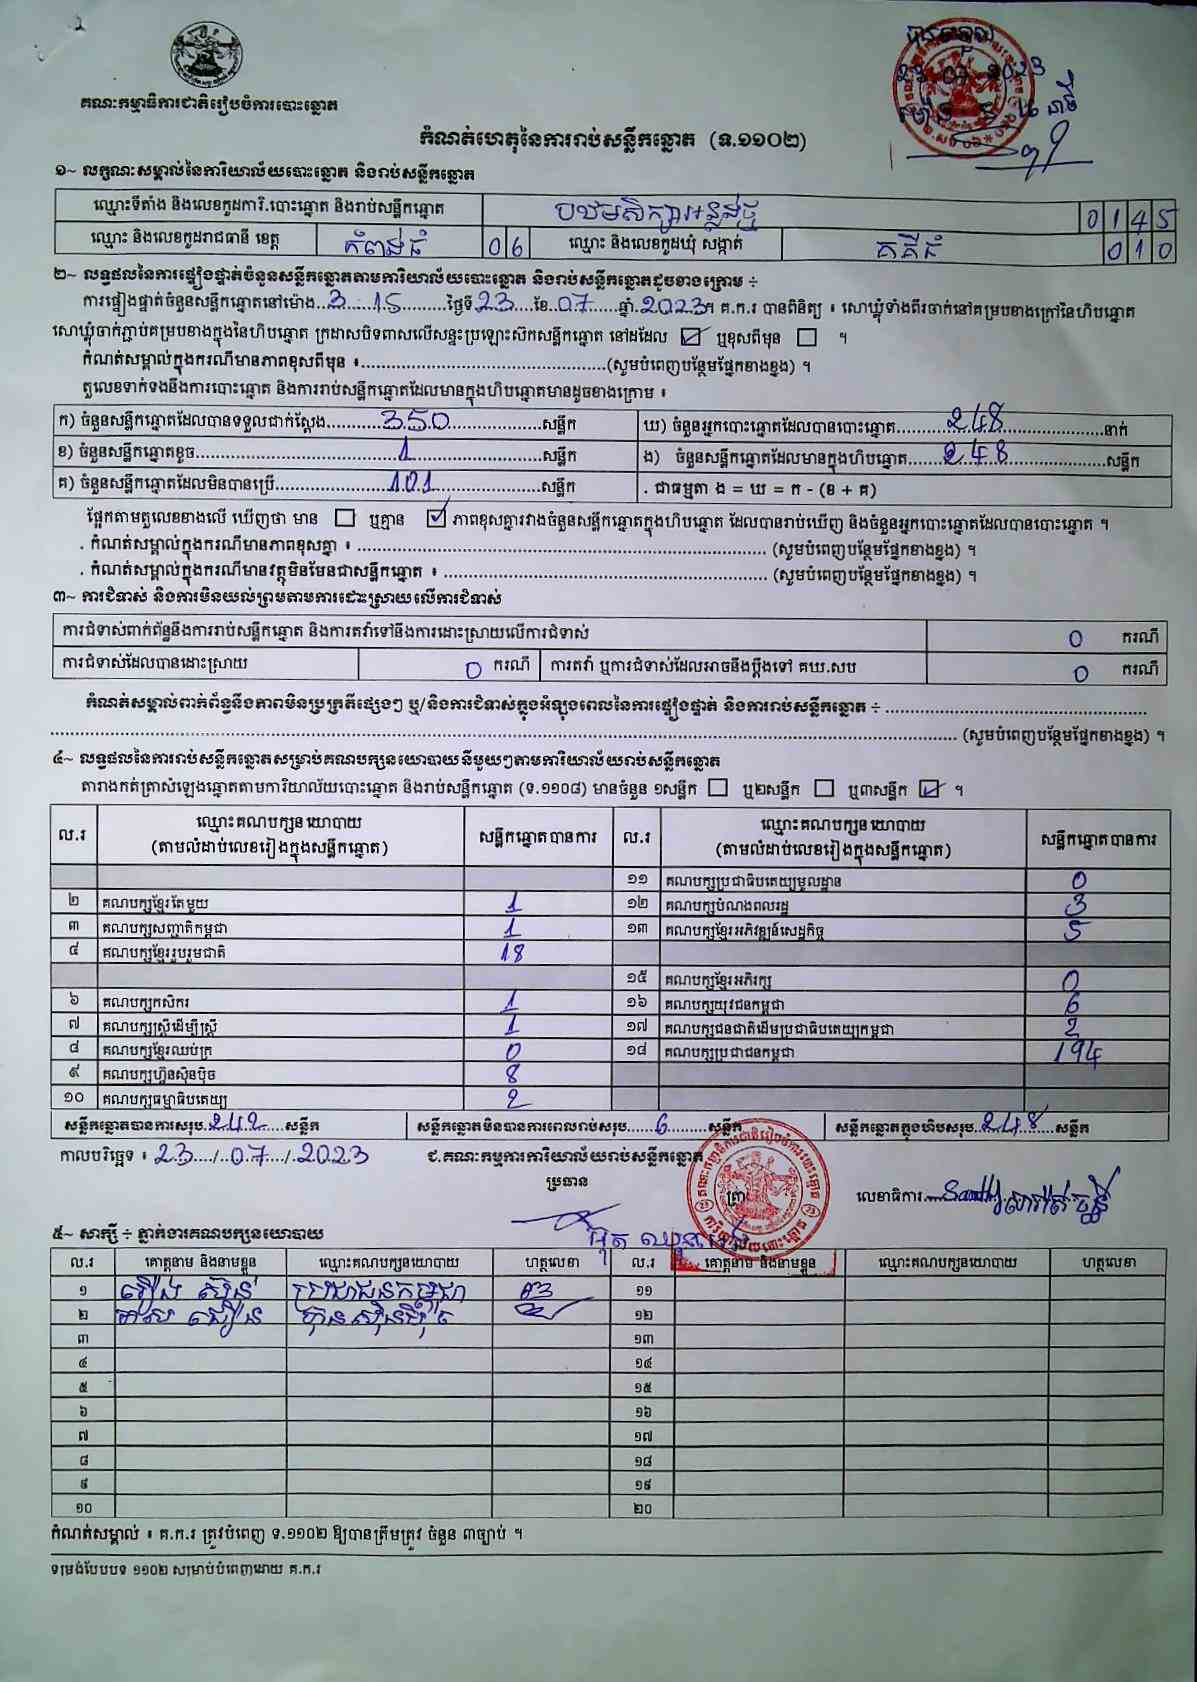 គណៈកម្មាធិការជាតិរៀបចំការបោះឆ្នោត
កំណត់ហេតុនៃការរាប់សន្លឹកឆ្នោត (ទ.១១០២)
១~ លក្ខណៈសម្គាល់នៃការិយាល័យបោះឆ្នោត និងរាប់សន្លឹកឆ្នោត
ឈ្មោះទីតាំង និងលេខកូដការិ.បោះឆ្នោត និងរាប់សន្លឹកឆ្នោត បឋមសិក្សា 0 1 4 5
ឈ្មោះ និងលេខកូដរាជធានី ខេត្ត កំពង់ធំ 0 6 ឈ្មោះ និងលេខកូដឃុំ សង្កាត់ គគីធំ 0 1 0
២~ លទ្ធផលនៃការផ្ទៀងផ្ទាត់ចំនួនសន្លឹកឆ្នោតតាមការិយាល័យបោះឆ្នោត និងរាប់សន្លឹកឆ្នោតដូចខាងក្រោម ÷
ការផ្ទៀងផ្ទាត់ចំនួនសន្លឹកឆ្នោតនៅម៉ោង 3 : 15 ថ្ងៃទី 23 ខែ 07 ឆ្នាំ 2023 ។ គ.ក.រ បានពិនិត្យ ៖ សោឃ្លុំទាំងពីរចាក់នៅគម្របខាងក្រៅនៃហិបឆ្នោត
សោឃ្លុំចាក់ភ្ជាប់គម្របខាងក្នុងនៃហិបឆ្នោត ក្រដាសបិទពាសលើសន្ទះប្រឡោះស៊កសន្លឹកឆ្នោត នៅដដែល ☑ ឬខុសពីមុន ☐ ។
កំណត់សម្គាល់ក្នុងករណីមានភាពខុសពីមុន ៖ (សូមបំពេញបន្ថែមផ្នែកខាងខ្នង) ។
តួលេខទាក់ទងនឹងការបោះឆ្នោត និងការរាប់សន្លឹកឆ្នោតដែលមានក្នុងហិបឆ្នោតមានដូចខាងក្រោម ៖
ក) ចំនួនសន្លឹកឆ្នោតដែលបានទទួលជាក់ស្តែង 350 សន្លឹក ឃ) ចំនួនអ្នកបោះឆ្នោតដែលបានបោះឆ្នោត 248 នាក់
ខ) ចំនួនសន្លឹកឆ្នោតខូច 1 សន្លឹក ង) ចំនួនសន្លឹកឆ្នោតដែលមានក្នុងហិបឆ្នោត 248 សន្លឹក
គ) ចំនួនសន្លឹកឆ្នោតដែលមិនបានប្រើ 101 សន្លឹក . ជាធម្មតា ង = ឃ = ក - (ខ + គ)
ផ្អែកតាមតួលេខខាងលើ ឃើញថា មាន ☐ ឬគ្មាន ☑ ភាពខុសគ្នារវាងចំនួនសន្លឹកឆ្នោតក្នុងហិបឆ្នោត ដែលបានរាប់ឃើញ និងចំនួនអ្នកបោះឆ្នោតដែលបានបោះឆ្នោត ។
. កំណត់សម្គាល់ក្នុងករណីមានភាពខុសគ្នា ៖ (សូមបំពេញបន្ថែមផ្នែកខាងខ្នង) ។
. កំណត់សម្គាល់ក្នុងករណីមានវត្ថុមិនមែនជាសន្លឹកឆ្នោត ៖ (សូមបំពេញបន្ថែមផ្នែកខាងខ្នង) ។
៣~ ការជំទាស់ និងការមិនយល់ព្រមតាមការដោះស្រាយលើការជំទាស់
ការជំទាស់ពាក់ព័ន្ធនឹងការរាប់សន្លឹកឆ្នោត និងការតវ៉ាទៅនឹងការដោះស្រាយលើការជំទាស់ 0 ករណី
ការជំទាស់ដែលបានដោះស្រាយ 0 ករណី ការតវ៉ា ឬការជំទាស់ដែលអាចនឹងប្តឹងទៅ គឃ.សប 0 ករណី
កំណត់សម្គាល់ពាក់ព័ន្ធនឹងភាពមិនប្រក្រតីផ្សេងៗ ឬ/និងការជំទាស់ក្នុងអំឡុងពេលនៃការផ្ទៀងផ្ទាត់ និងការរាប់សន្លឹកឆ្នោត ÷
(សូមបំពេញបន្ថែមផ្នែកខាងខ្នង) ។
៤~ លទ្ធផលនៃការរាប់សន្លឹកឆ្នោតសម្រាប់គណបក្សនយោបាយនីមួយៗតាមការិយាល័យរាប់សន្លឹកឆ្នោត
តារាងកត់ត្រាសំឡេងឆ្នោតតាមការិយាល័យបោះឆ្នោត និងរាប់សន្លឹកឆ្នោត (ទ.១១០៨) មានចំនួន ១សន្លឹក ☐ ឬ២សន្លឹក ☐ ឬ៣សន្លឹក ☑ ។
ល.រ ឈ្មោះគណបក្សនយោបាយ (តាមលំដាប់លេខរៀងក្នុងសន្លឹកឆ្នោត) សន្លឹកឆ្នោតបានការ ល.រ ឈ្មោះគណបក្សនយោបាយ (តាមលំដាប់លេខរៀងក្នុងសន្លឹកឆ្នោត) សន្លឹកឆ្នោតបានការ
១១ គណបក្សប្រជាធិបតេយ្យមូលដ្ឋាន 0
២ គណបក្សខ្មែរតែមួយ 1 ១២ គណបក្សបំណងពលរដ្ឋ 3
៣ គណបក្សសញ្ជាតិកម្ពុជា 1 ១៣ គណបក្សខ្មែរអភិវឌ្ឍន៍សេដ្ឋកិច្ច 5
៤ គណបក្សខ្មែររួបរួមជាតិ 18
១៥ គណបក្សខ្មែរអភិរក្ស 0
៦ គណបក្សកសិករ 1 ១៦ គណបក្សយុវជនកម្ពុជា 6
៧ គណបក្សស្ត្រីដើម្បីស្ត្រី 1 ១៧ គណបក្សជនជាតិដើមប្រជាធិបតេយ្យកម្ពុជា 2
៨ គណបក្សខ្មែរឈប់ក្រ 0 ១៨ គណបក្សប្រជាជនកម្ពុជា 194
៩ គណបក្សហ៊្វុនស៊ិនប៉ិច 8
១០ គណបក្សធម្មាធិបតេយ្យ 2
សន្លឹកឆ្នោតបានការសរុប 242 សន្លឹក សន្លឹកឆ្នោតមិនបានការពេលរាប់សរុប 6 សន្លឹក សន្លឹកឆ្នោតក្នុងហិបសរុប 248 សន្លឹក
កាលបរិច្ឆេទ ៖ 23 / 07 / 2023 ជ.គណៈកម្មការការិយាល័យរាប់សន្លឹកឆ្នោត
ប្រធាន ត្រា លេខាធិការ
៥~ សាក្សី ÷ ភ្នាក់ងារគណបក្សនយោបាយ
ល.រ គោត្តនាម និងនាមខ្លួន ឈ្មោះគណបក្សនយោបាយ ហត្ថលេខា ល.រ គោត្តនាម និងនាមខ្លួន ឈ្មោះគណបក្សនយោបាយ ហត្ថលេខា
១ ប្រជាជនកម្ពុជា ១១
២ ហ៊្វុនស៊ិនប៉ិច ១២
៣ ១៣
៤ ១៤
៥ ១៥
៦ ១៦
៧ ១៧
៨ ១៨
៩ ១៩
១០ ២០
កំណត់សម្គាល់ ៖ គ.ក.រ ត្រូវបំពេញ ទ.១១០២ ឱ្យបានត្រឹមត្រូវ ចំនួន ៣ច្បាប់ ។
ទម្រង់បែបបទ ១១០២ សម្រាប់បំពេញដោយ គ.ក.រ